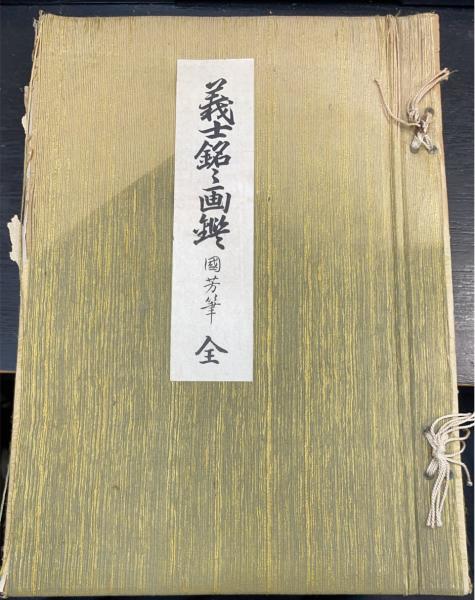 義士銘々画鑑
國芳筆
全